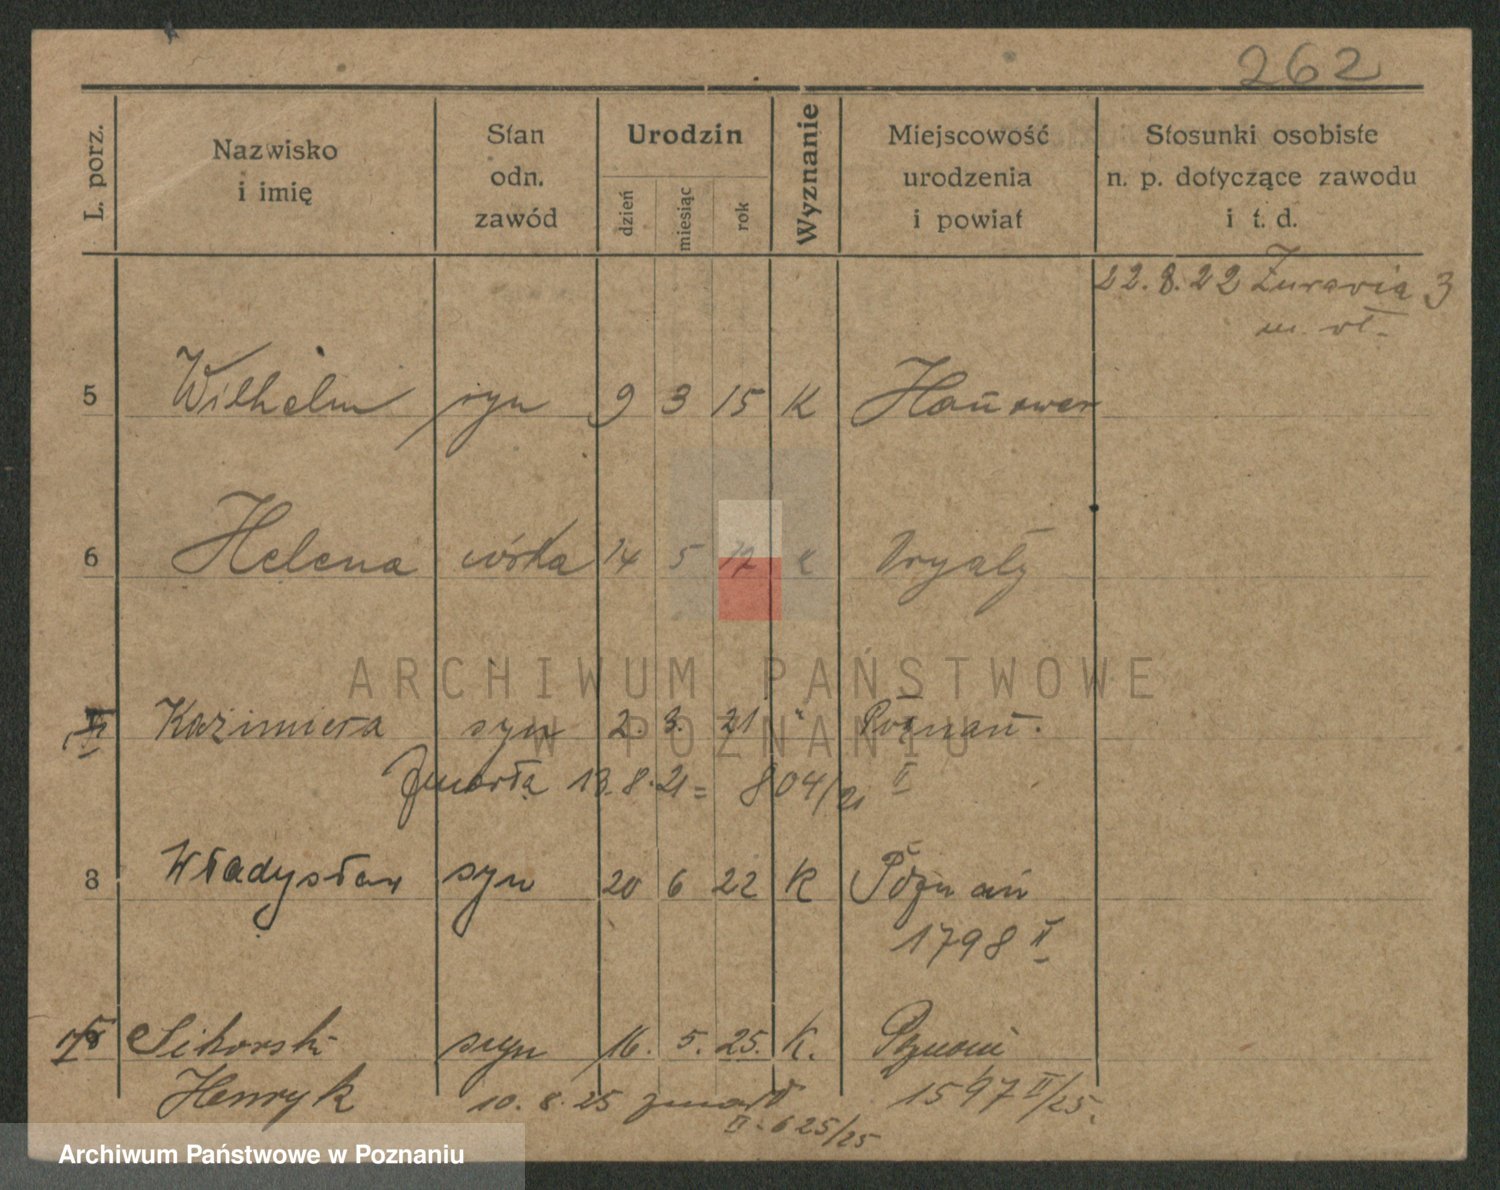 262
L. porz.
Nazwisko
i imię
Stan
odn.
zawód
Urodzin
dzień
miesiąc
rok
Wyznanie
Miejscowość
urodzenia
i powiat
Stosunki osobiste
n. p. dotyczące zawodu
i t. d.
22.8.22 Żuravia 3
m. wł.
5 Wilhelm syn 9 3 15 K Hanower
6 Helena córka 14 5
Kazimiera syn 2. 3. 21 " Poznań.
Zmarła 13.8.21 = 804/21 II
8 Władysław syn 20 6 22 K Poznań
1798 II
Sikorski syn 16. 5. 25. K. Poznań
Henryk 10.8.25 zmarł 1597 II/25.
II. 625/25
ARCHIWUM PAŃSTWOWE
W POZNANIU
Archiwum Państwowe w Poznaniu